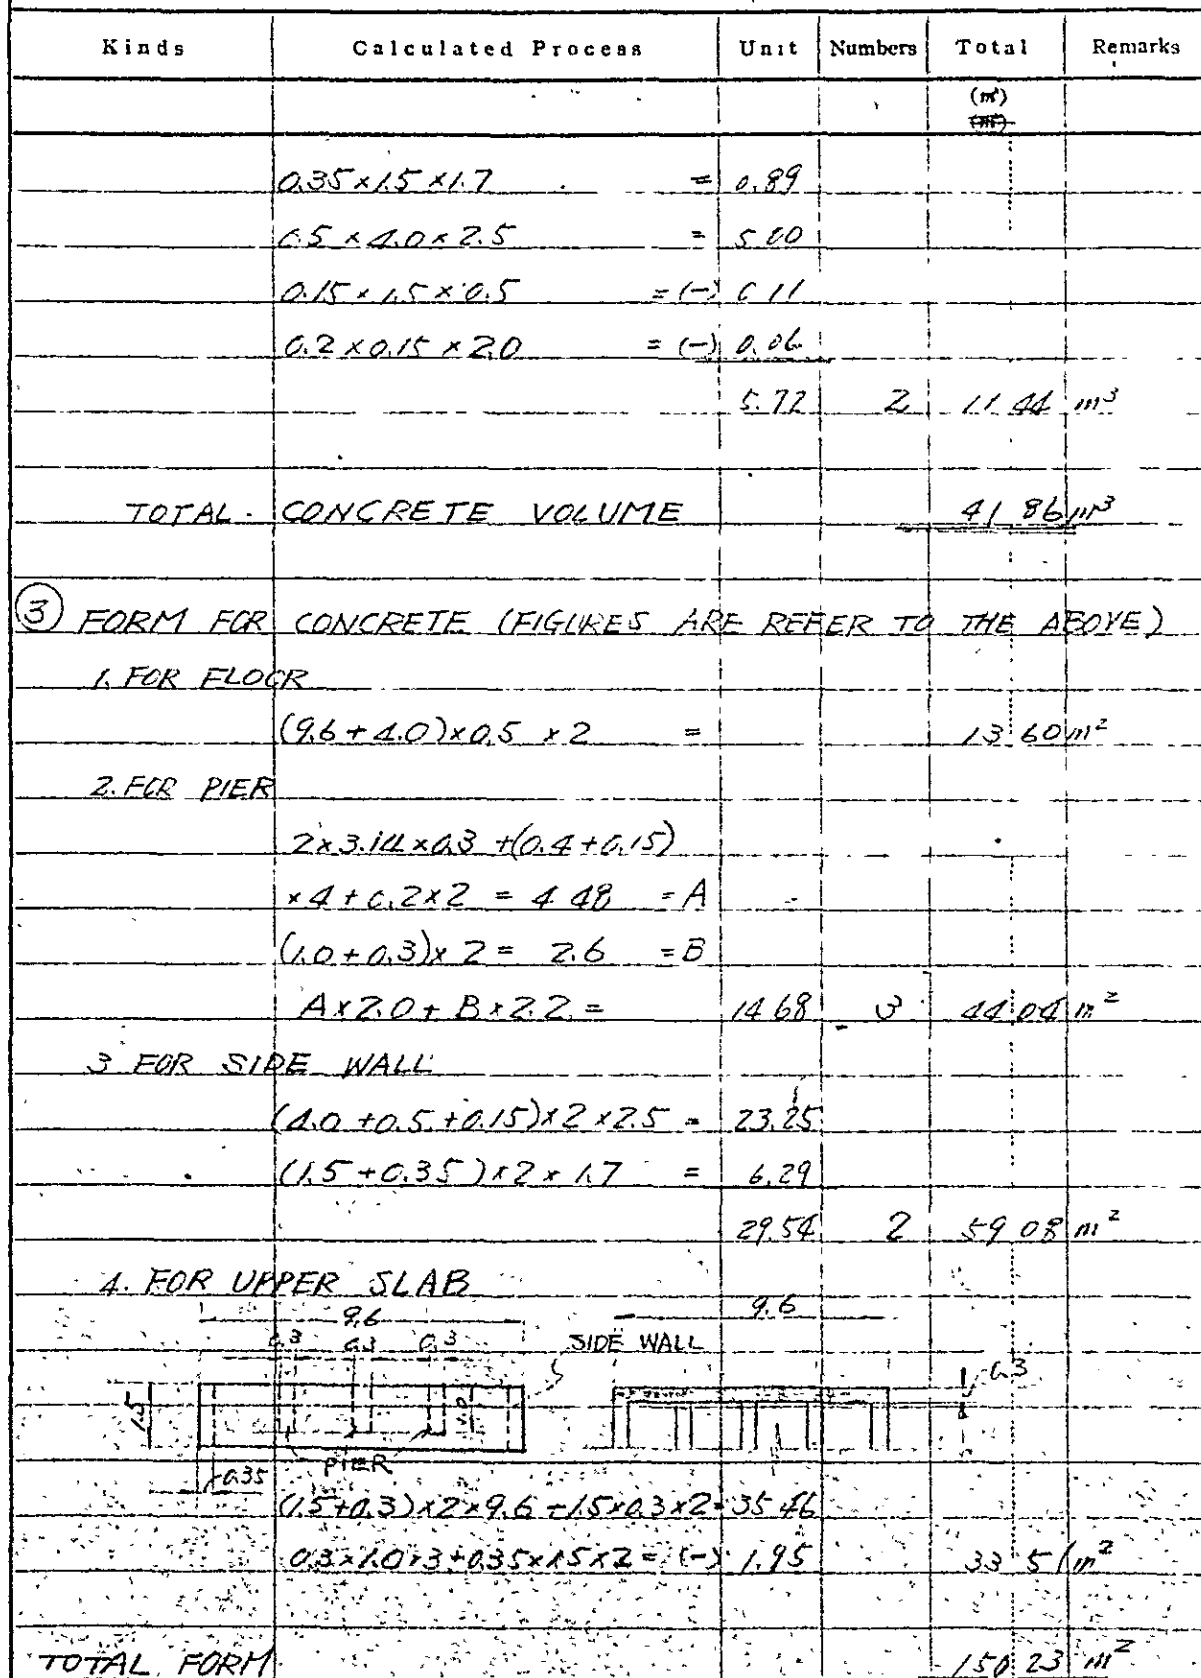 Kinds Calculated Process Unit Numbers Total Remarks
(m²)
(m³)
0.35×1.5×1.7 = 0.89
0.5×4.0×2.5 = 5.00
0.15×1.5×0.5 =(-) 0.11
0.2×0.15×2.0 =(-) 0.06
5.72 2 11.44 m³
TOTAL CONCRETE VOLUME 41.86 m³
③ FORM FOR CONCRETE (FIGURES ARE REFER TO THE ABOVE)
1. FOR FLOOR
(9.6+4.0)×0.5×2 = 13.60 m²
2. FOR PIER
2×3.14×0.3+(0.4+0.15)
×4+0.2×2 = 4.48 = A
(1.0+0.3)×2 = 2.6 = B
A×2.0+B×2.2 = 14.68 3 44.04 m²
3 FOR SIDE WALL
(4.0+0.5+0.15)×2×2.5 = 23.25
(1.5+0.35)×2×1.7 = 6.29
29.54 2 59.08 m²
4. FOR UPPER SLAB
9.6 9.6
0.3 0.3 0.3 SIDE WALL
0.3
1.5 1.0
PIER
0.35
(1.5+0.3)×2×9.6+1.5×0.3×2=35.46
0.3×1.0×3+0.35×1.5×2=(-) 1.95 33.51 m²
TOTAL FORM 150.23 m²